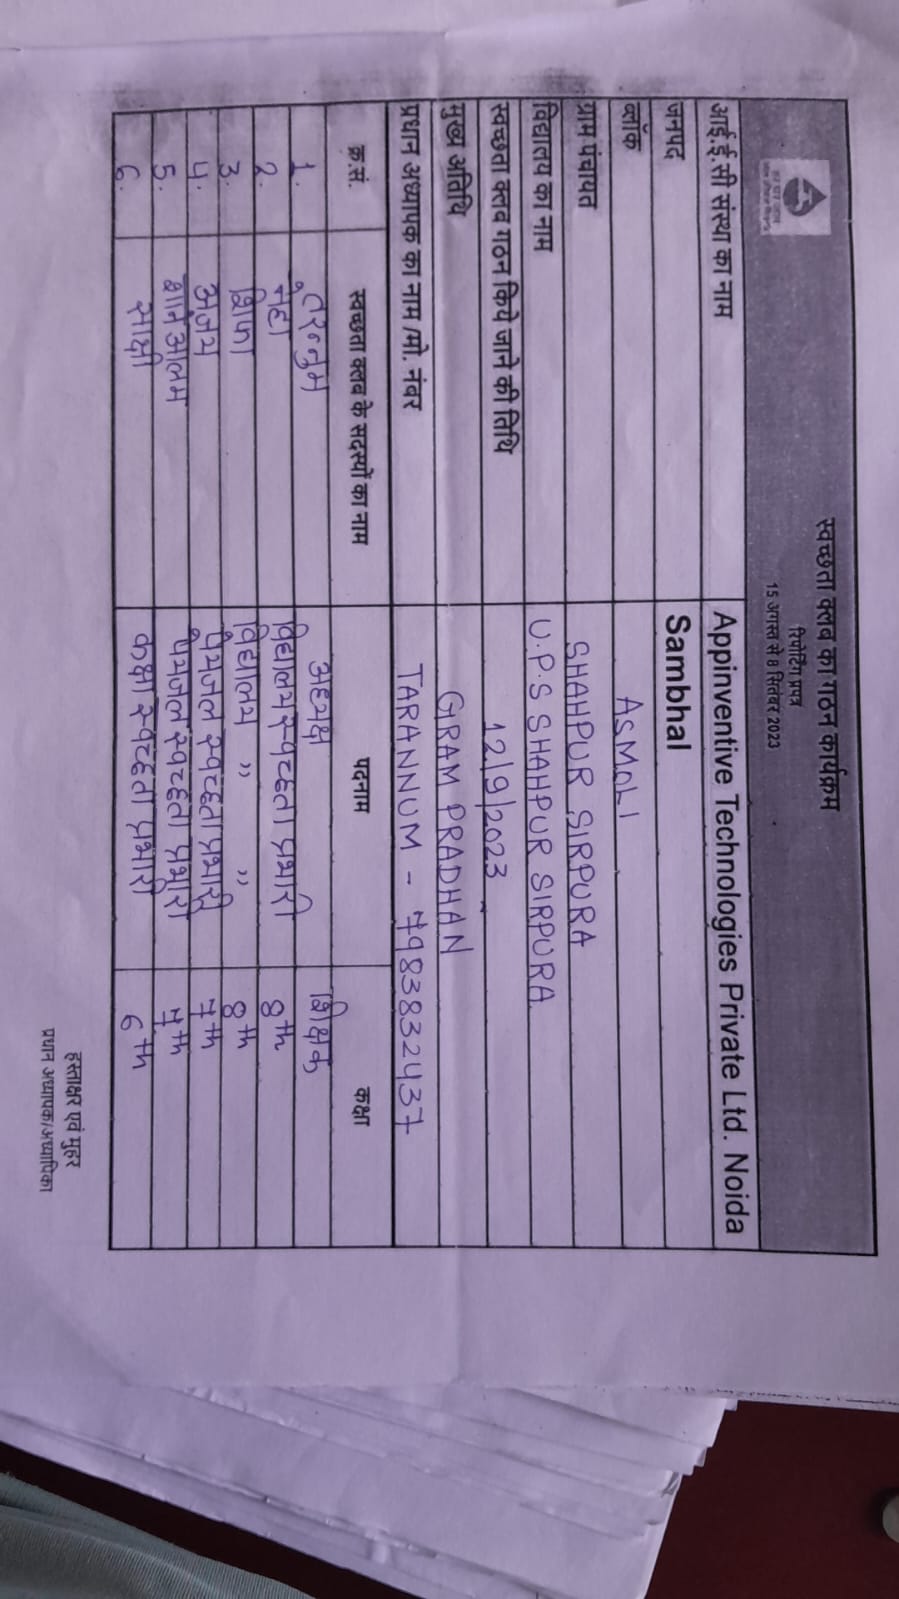 स्वच्छता क्लव का गठन कार्यक्रम
रिपोर्टिंग प्रपत्र
15 अगस्त से 8 सितंबर 2023
आई.ई.सी संस्था का नाम Appinventive Technologies Private Ltd. Noida
जनपद Sambhal
ब्लॉक ASMOLI
ग्राम पंचायत SHAHPUR SIRPURA
विद्यालय का नाम U.P.S SHAHPUR SIRPURA
स्वच्छता क्लव गठन किये जाने की तिथि 12/9/2023
मुख्य अतिथि GRAM PRADHAN
प्रधान अध्यापक का नाम /मो. नंबर TARANNUM - 7983832437
क्र.सं. स्वच्छता क्लव के सदस्यों का नाम पदनाम कक्षा
1. तरन्नुम अध्यक्ष शिक्षक
2. नेहा विद्यालय स्वच्छता प्रभारी 8th
3. विद्यालय " " 8th
4. अजय पेयजल स्वच्छता प्रभारी 7th
5. शाने आलम पेयजल स्वच्छता प्रभारी 7th
6. साक्षी कक्षा स्वच्छता प्रभारी 6th
हस्ताक्षर एवं मुहर
प्रधान अध्यापक/अध्यापिका